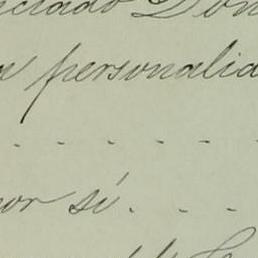 nciado Don
a personalid
. . . . . .
por sí. . . .